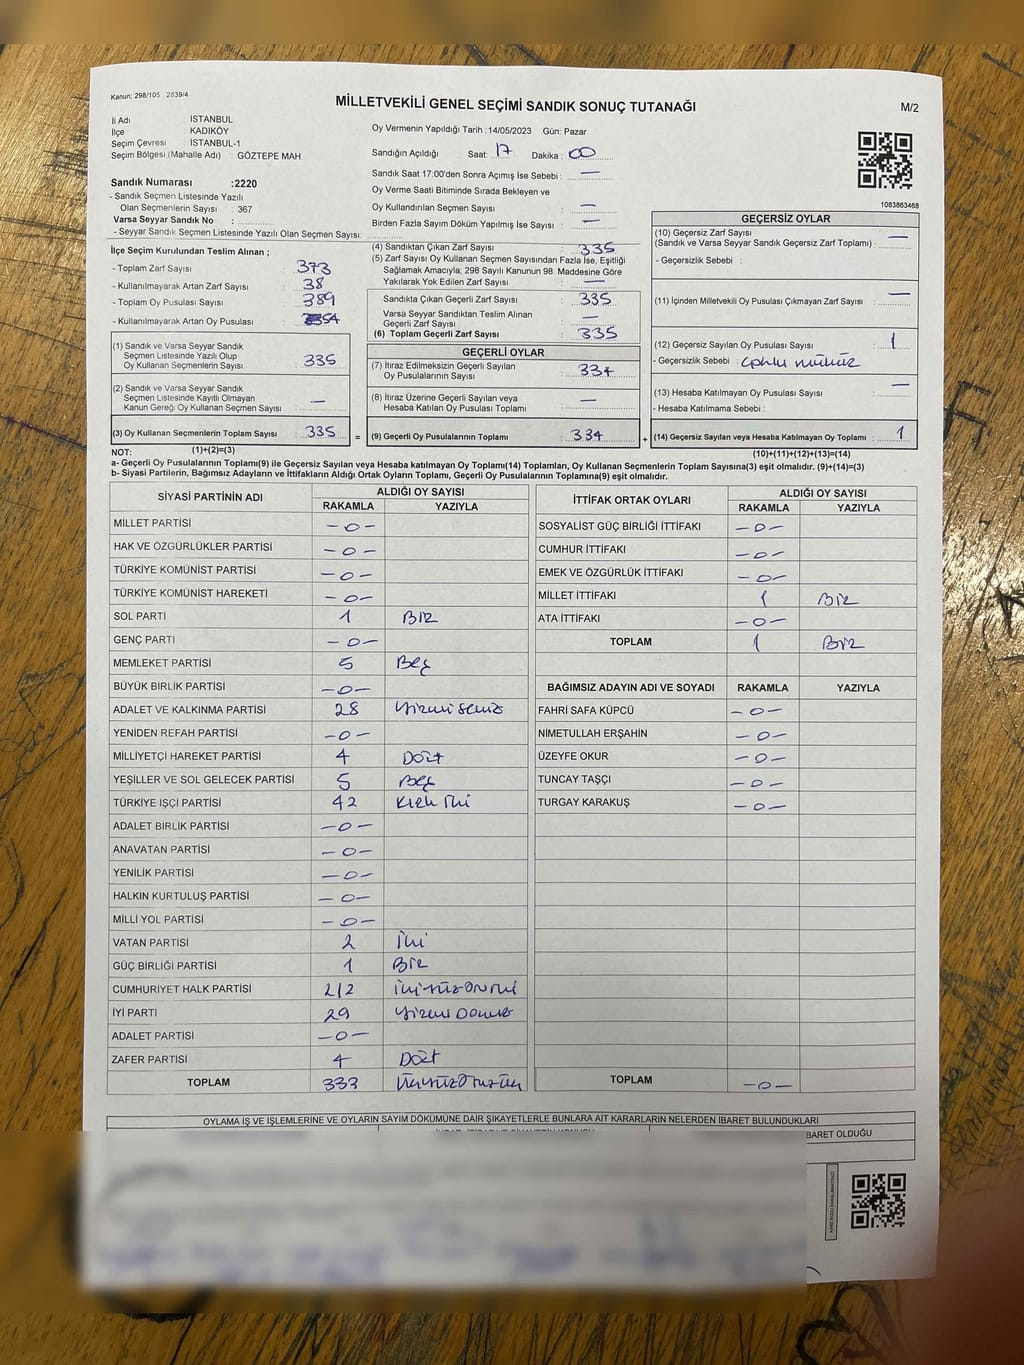 Kanun: 298/105 2839/4
MİLLETVEKİLİ GENEL SEÇİMİ SANDIK SONUÇ TUTANAĞI
M/2
İl Adı İSTANBUL
İlçe KADIKÖY
Seçim Çevresi İSTANBUL-1
Seçim Bölgesi (Mahalle Adı) : GÖZTEPE MAH
Oy Vermenin Yapıldığı Tarih : 14/05/2023 Gün: Pazar
Sandığın Açıldığı Saat: 17 Dakika : 00
Sandık Saat 17:00'den Sonra Açımış İse Sebebi : —
Oy Verme Saati Bitiminde Sırada Bekleyen ve
Oy Kullandırılan Seçmen Sayısı : —
Birden Fazla Sayım Döküm Yapılmış İse Sayısı : —
1083863468
Sandık Numarası :2220
- Sandık Seçmen Listesinde Yazılı
Olan Seçmenlerin Sayısı : 367
Varsa Seyyar Sandık No :
- Seyyar Sandık Seçmen Listesinde Yazılı Olan Seçmen Sayısı:
İlçe Seçim Kurulundan Teslim Alınan ;
- Toplam Zarf Sayısı : 373
- Kullanılmayarak Artan Zarf Sayısı : 38
- Toplam Oy Pusulası Sayısı : 389
- Kullanılmayarak Artan Oy Pusulası : 54
(1) Sandık ve Varsa Seyyar Sandık
Seçmen Listesinde Yazılı Olup
Oy Kullanan Seçmenlerin Sayısı : 335
(2) Sandık ve Varsa Seyyar Sandık
Seçmen Listesinde Kayıtlı Olmayan
Kanun Gereği Oy Kullanan Seçmen Sayısı : —
(3) Oy Kullanan Seçmenlerin Toplam Sayısı : 335
(1)+(2)=(3)
(4) Sandıktan Çıkan Zarf Sayısı : 335
(5) Zarf Sayısı Oy Kullanan Seçmen Sayısından Fazla İse, Eşitliği
Sağlamak Amacıyla; 298 Sayılı Kanunun 98. Maddesine Göre
Yakılarak Yok Edilen Zarf Sayısı : —
Sandıkta Çıkan Geçerli Zarf Sayısı : 335
Varsa Seyyar Sandıktan Teslim Alınan
Geçerli Zarf Sayısı : —
(6) Toplam Geçerli Zarf Sayısı : 335
GEÇERLİ OYLAR
(7) İtiraz Edilmeksizin Geçerli Sayılan
Oy Pusulalarının Sayısı : 334
(8) İtiraz Üzerine Geçerli Sayılan veya
Hesaba Katılan Oy Pusulası Toplamı : —
= (9) Geçerli Oy Pusulalarının Toplamı : 334 +
GEÇERSİZ OYLAR
(10) Geçersiz Zarf Sayısı
(Sandık ve Varsa Seyyar Sandık Geçersiz Zarf Toplamı) : —
- Geçersizlik Sebebi :
(11) İçinden Milletvekili Oy Pusulası Çıkmayan Zarf Sayısı : —
(12) Geçersiz Sayılan Oy Pusulası Sayısı : 1
- Geçersizlik Sebebi : Çoklu mühür
(13) Hesaba Katılmayan Oy Pusulası Sayısı : —
- Hesaba Katılmama Sebebi :
(14) Geçersiz Sayılan veya Hesaba Katılmayan Oy Toplamı : 1
(10)+(11)+(12)+(13)=(14)
NOT:
a- Geçerli Oy Pusulalarının Toplamı(9) ile Geçersiz Sayılan veya Hesaba katılmayan Oy Toplamı(14) Toplamları, Oy Kullanan Seçmenlerin Toplam Sayısına(3) eşit olmalıdır. (9)+(14)=(3)
b- Siyasi Partilerin, Bağımsız Adayların ve İttifakların Aldığı Ortak Oyların Toplamı, Geçerli Oy Pusulalarının Toplamına(9) eşit olmalıdır.
SİYASİ PARTİNİN ADI ALDIĞI OY SAYISI
RAKAMLA YAZIYLA
MİLLET PARTİSİ -0-
HAK VE ÖZGÜRLÜKLER PARTİSİ -0-
TÜRKİYE KOMÜNİST PARTİSİ -0-
TÜRKİYE KOMÜNİST HAREKETİ -0-
SOL PARTİ 1 BİR
GENÇ PARTİ -0-
MEMLEKET PARTİSİ 5 Beş
BÜYÜK BİRLİK PARTİSİ -0-
ADALET VE KALKINMA PARTİSİ 28 Yirmi Sekiz
YENİDEN REFAH PARTİSİ -0-
MİLLİYETÇİ HAREKET PARTİSİ 4 Dört
YEŞİLLER VE SOL GELECEK PARTİSİ 5 Beş
TÜRKİYE İŞÇİ PARTİSİ 42 Kırk İki
ADALET BİRLİK PARTİSİ -0-
ANAVATAN PARTİSİ -0-
YENİLİK PARTİSİ -0-
HALKIN KURTULUŞ PARTİSİ -0-
MİLLİ YOL PARTİSİ -0-
VATAN PARTİSİ 2 İki
GÜÇ BİRLİĞİ PARTİSİ 1 BİR
CUMHURİYET HALK PARTİSİ 212 İkiYüzOnİki
İYİ PARTİ 29 Yirmi Dokuz
ADALET PARTİSİ -0-
ZAFER PARTİSİ 4 Dört
TOPLAM 333 ÜçYüzOtuzÜç
İTTİFAK ORTAK OYLARI ALDIĞI OY SAYISI
RAKAMLA YAZIYLA
SOSYALİST GÜÇ BİRLİĞİ İTTİFAKI -0-
CUMHUR İTTİFAKI -0-
EMEK VE ÖZGÜRLÜK İTTİFAKI -0-
MİLLET İTTİFAKI 1 BİR
ATA İTTİFAKI -0-
TOPLAM 1 BİR
BAĞIMSIZ ADAYIN ADI VE SOYADI RAKAMLA YAZIYLA
FAHRİ SAFA KÜPCÜ -0-
NİMETULLAH ERŞAHİN -0-
ÜZEYFE OKUR -0-
TUNCAY TAŞÇI -0-
TURGAY KARAKUŞ -0-
TOPLAM -0-
OYLAMA İŞ VE İŞLEMLERİNE VE OYLARIN SAYIM DÖKÜMÜNE DAİR ŞİKAYETLERLE BUNLARA AİT KARARLARIN NELERDEN İBARET BULUNDUKLARI
BARET OLDUĞU